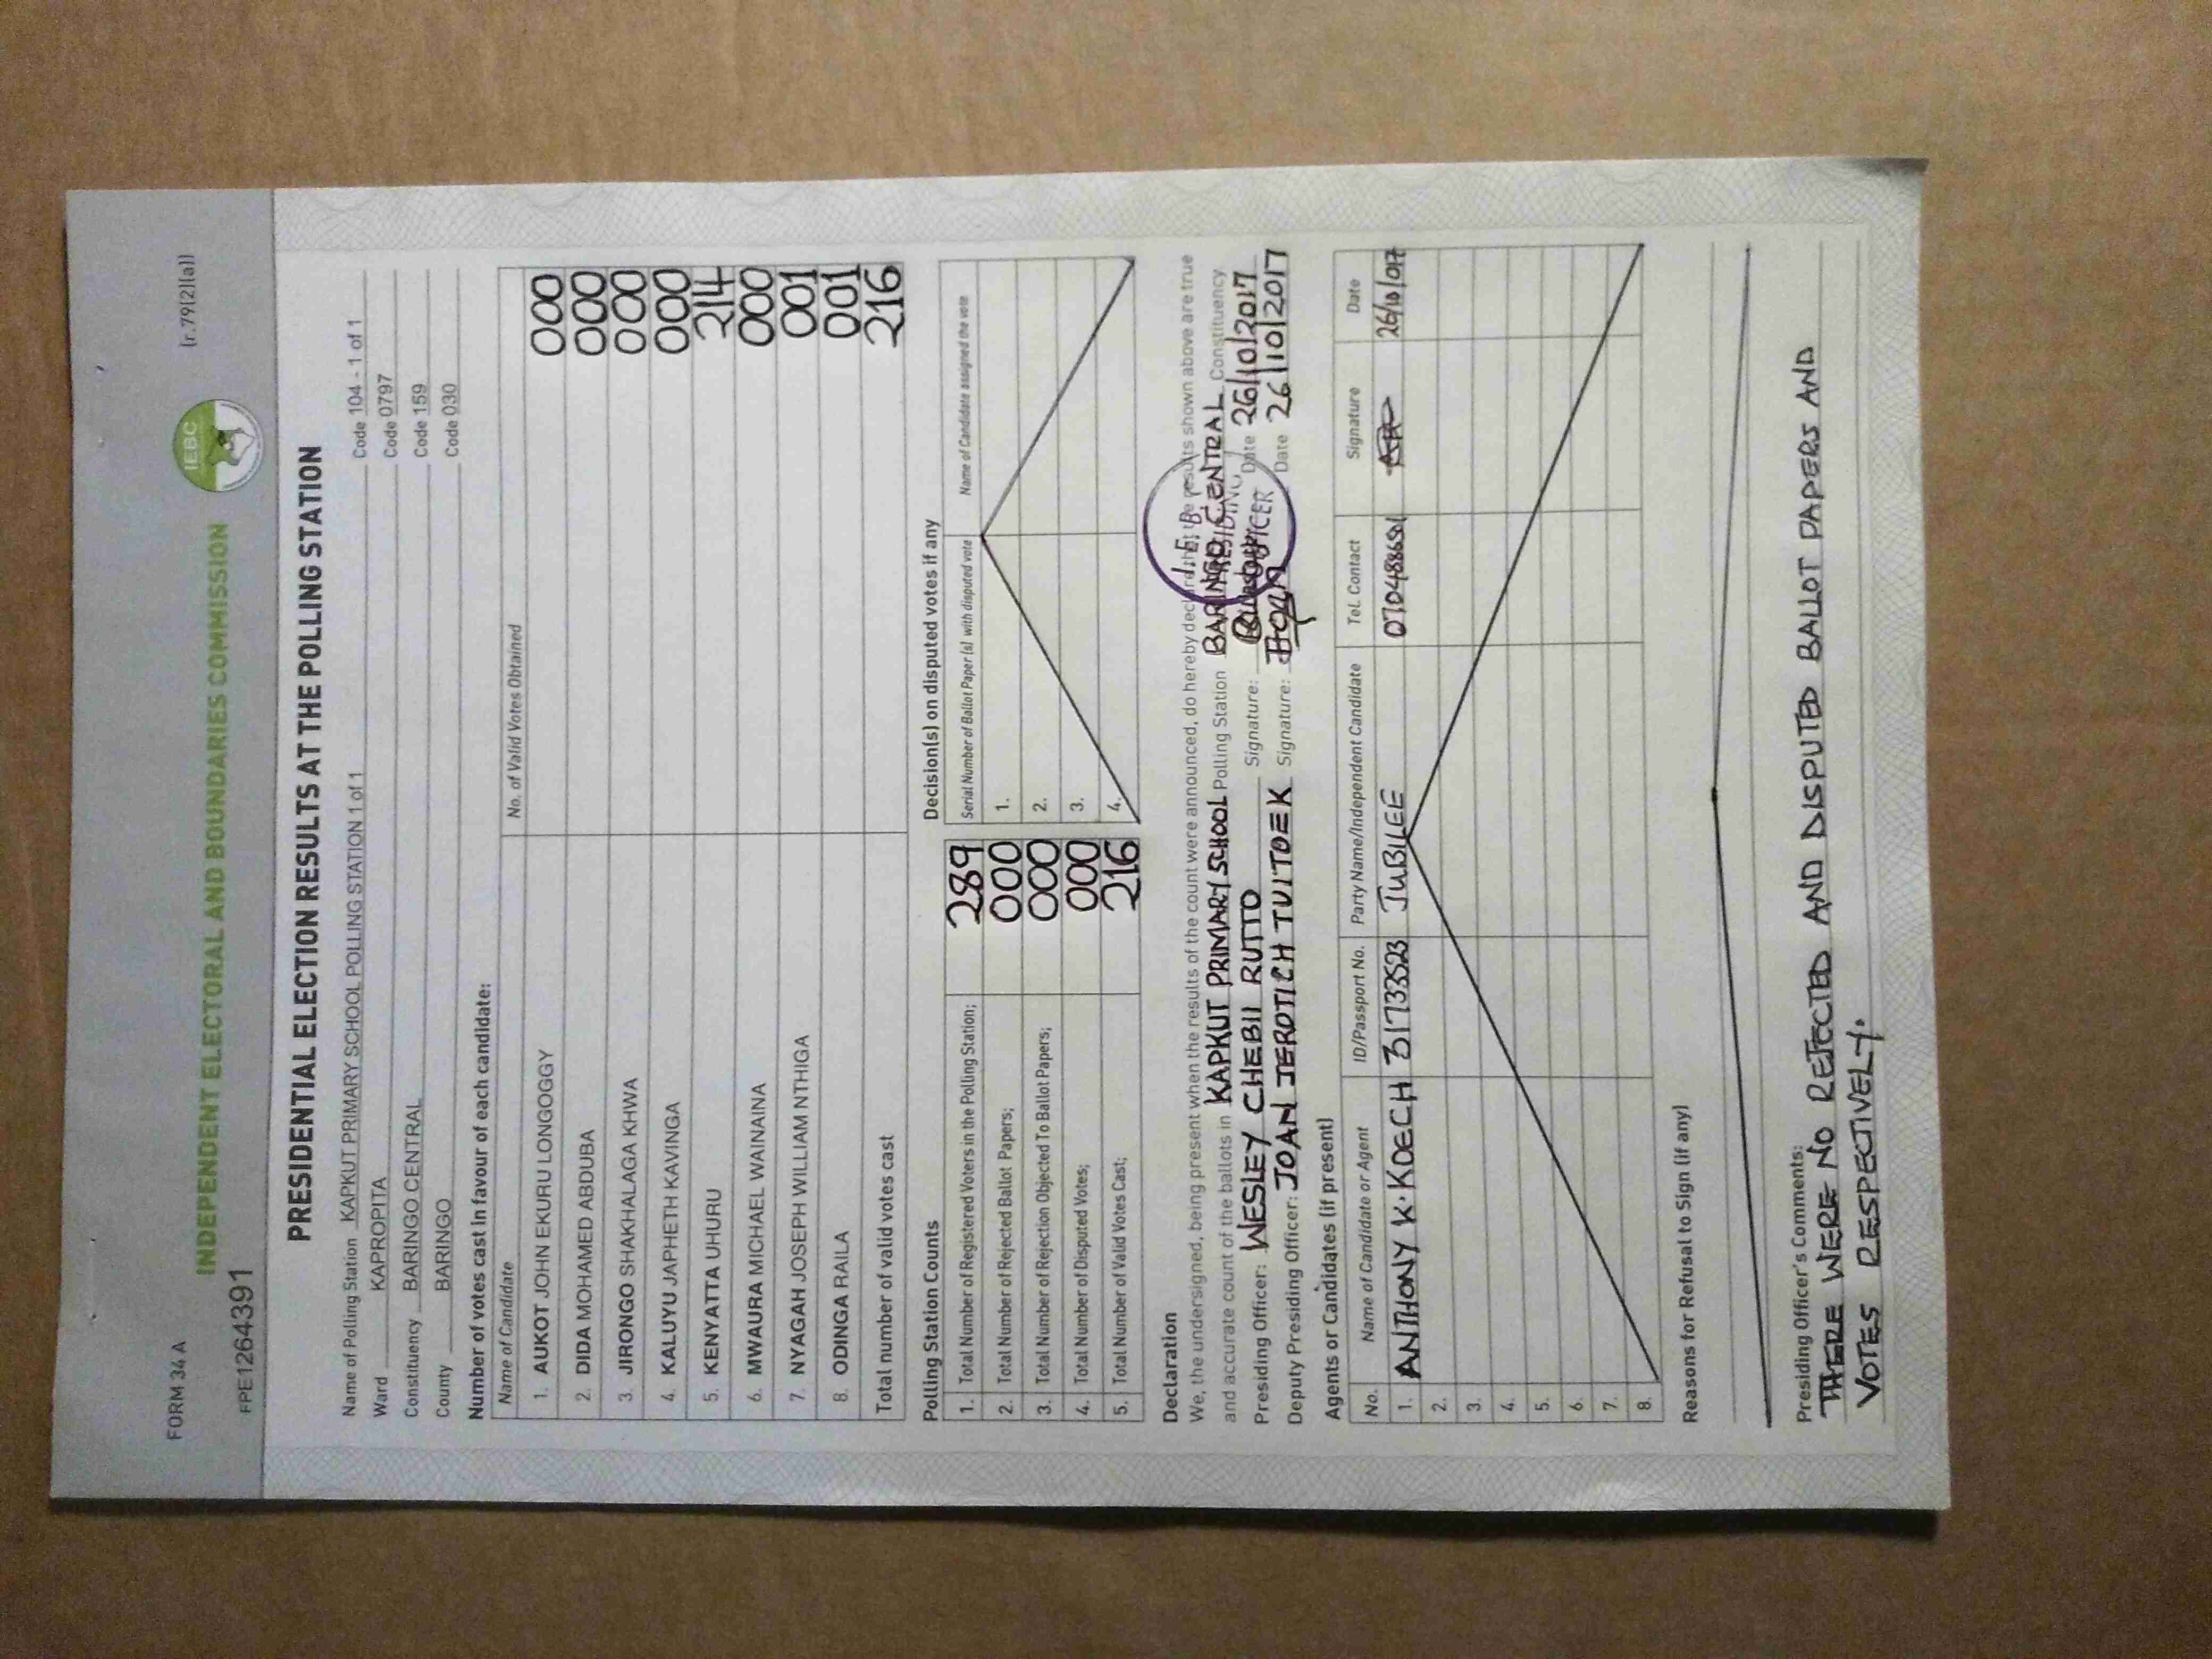 FORM 34 A
(r.79(2)(a))
IEBC
INDEPENDENT ELECTORAL AND BOUNDARIES COMMISSION
FPE1264391
PRESIDENTIAL ELECTION RESULTS AT THE POLLING STATION
Name of Polling Station KAPKUT PRIMARY SCHOOL POLLING STATION 1 of 1 Code 104 - 1 of 1
Ward KAPROPITA Code 0797
Constituency BARINGO CENTRAL Code 159
County BARINGO Code 030
Number of votes cast in favour of each candidate:
Name of Candidate No. of Valid Votes Obtained
1. AUKOT JOHN EKURU LONGOGGY 000
2. DIDA MOHAMED ABDUBA 000
3. JIRONGO SHAKHALAGA KHWA 000
4. KALUYU JAPHETH KAVINGA 000
5. KENYATTA UHURU 214
6. MWAURA MICHAEL WAINAINA 000
7. NYAGAH JOSEPH WILLIAM NTHIGA 001
8. ODINGA RAILA 001
Total number of valid votes cast 216
Polling Station Counts
1. Total Number of Registered Voters in the Polling Station; 289
2. Total Number of Rejected Ballot Papers; 000
3. Total Number of Rejection Objected To Ballot Papers; 000
4. Total Number of Disputed Votes; 000
5. Total Number of Valid Votes Cast; 216
Decision(s) on disputed votes if any
Serial Number of Ballot Paper (s) with disputed vote Name of Candidate assigned the vote
1.
2.
3.
4.
Declaration
We, the undersigned, being present when the results of the count were announced, do hereby declare that the results shown above are true
and accurate count of the ballots in KAPKUT PRIMARY SCHOOL Polling Station BARINGO CENTRAL Constituency
Presiding Officer: WESLEY CHEBII RUTTO Signature: Date 26/10/2017
Deputy Presiding Officer: JOAN JEROTICH TUITOEK Signature: Joan Date 26/10/2017
I.E.B.C
PRESIDING
OFFICER
Agents or Candidates (if present)
No. Name of Candidate or Agent ID/Passport No. Party Name/Independent Candidate Tel. Contact Signature Date
1. ANTHONY K. KOECH 31733523 JUBILEE 0704886501 26/10/017
2.
3.
4.
5.
6.
7.
8.
Reasons for Refusal to Sign (if any)
Presiding Officer's Comments:
THERE WERE NO REJECTED AND DISPUTED BALLOT PAPERS AND
VOTES RESPECTIVELY.